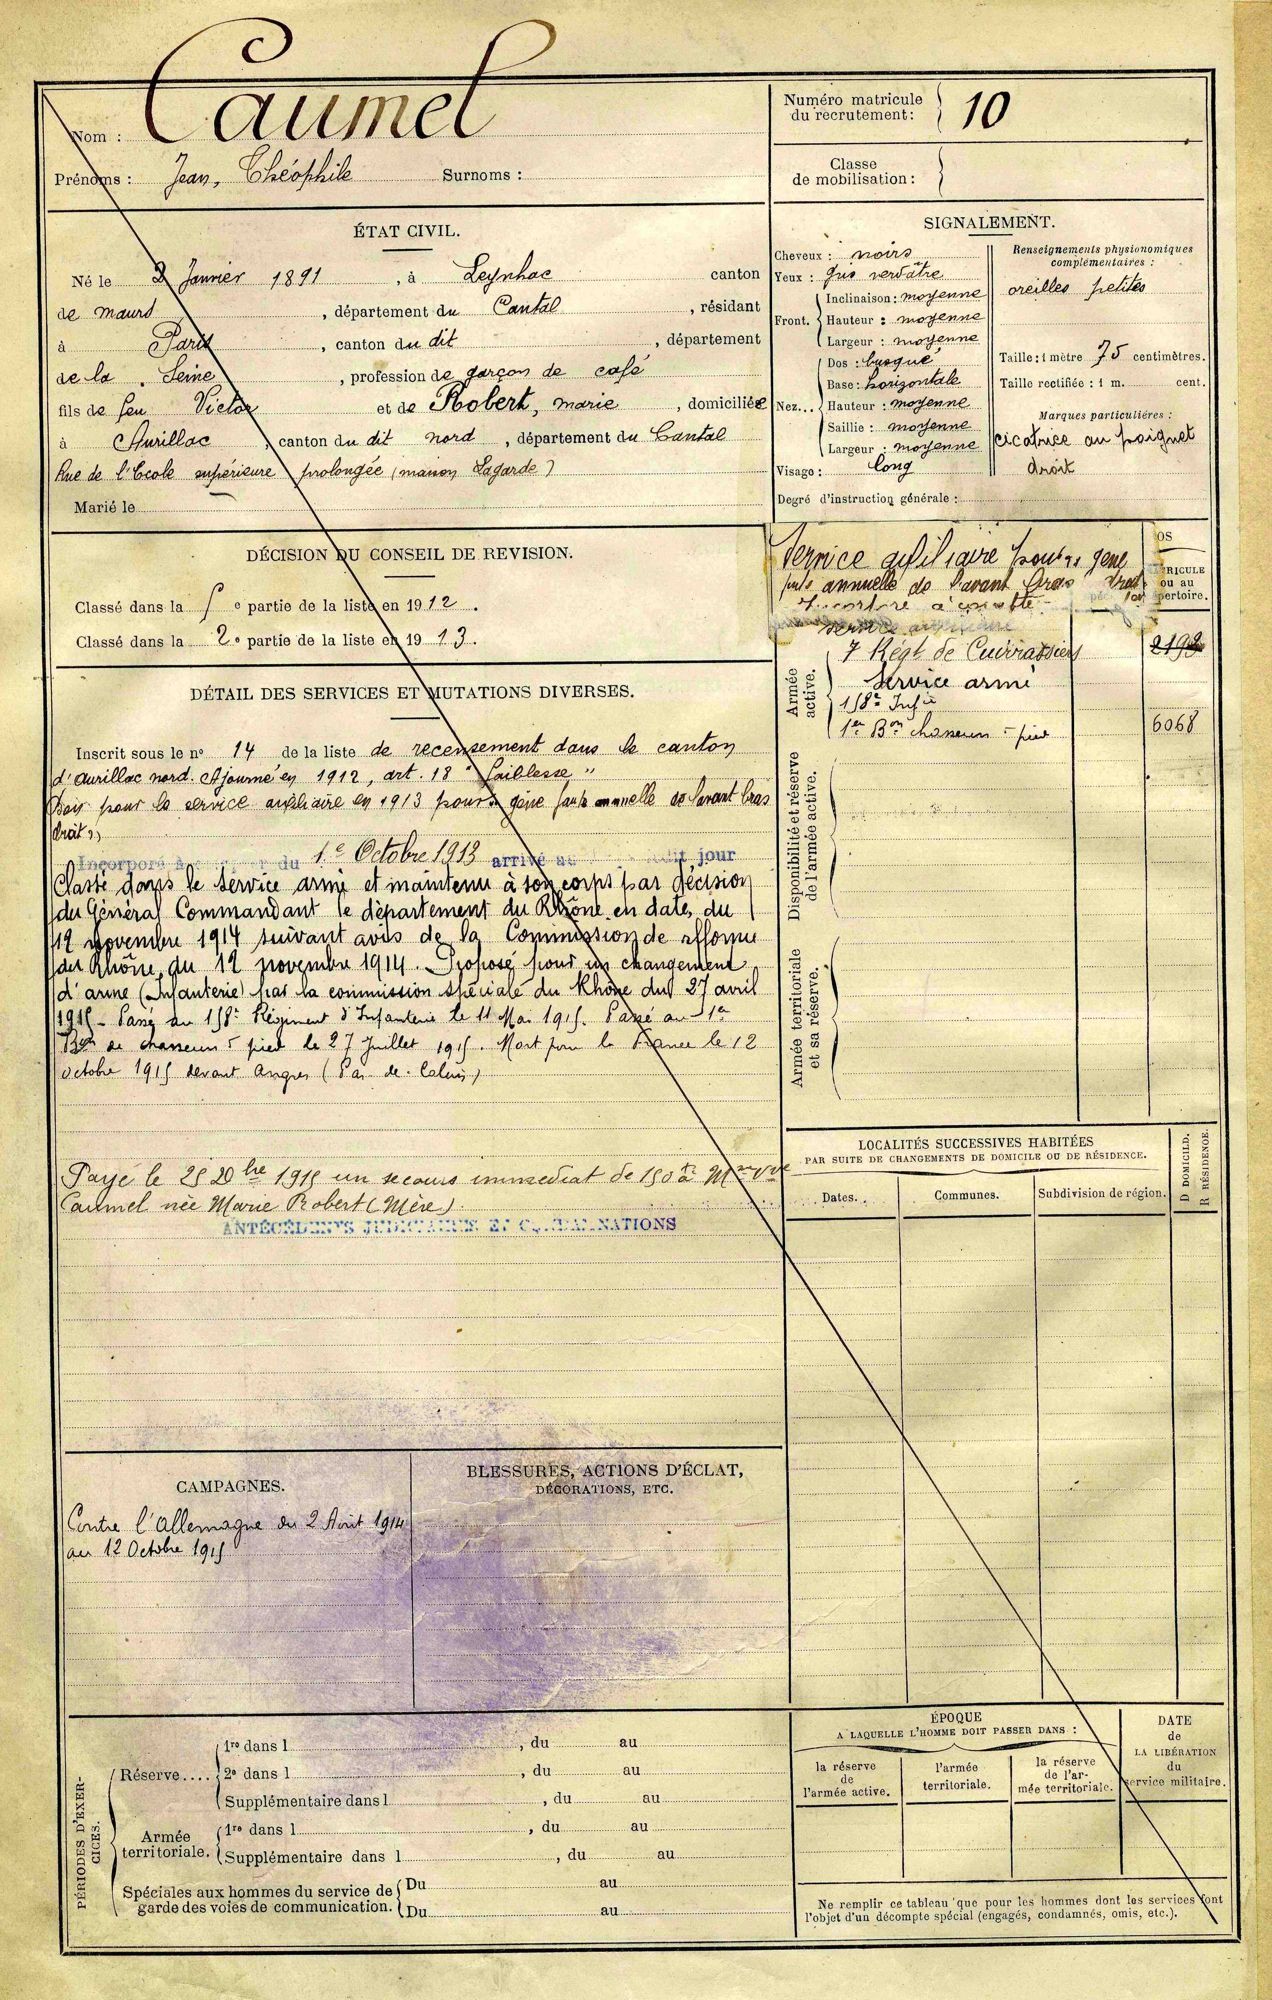 Nom : Caumel
Prénoms : Jean, Théophile Surnoms :
Numéro matricule du recrutement : 10
Classe de mobilisation :
ÉTAT CIVIL.
Né le 2 Janvier 1891, à Leynhac canton
de maurs, département du Cantal, résidant
à Paris, canton du dit, département
de la Seine, profession de garçon de café
fils de feu Victor et de Robert, marie, domiciliée
à Aurillac, canton du dit nord, département du Cantal
Rue de l'Ecole supérieure prolongée (maison Lagarde)
Marié le
SIGNALEMENT.
Cheveux : noirs
Yeux : gris verdâtre
Front. Inclinaison : moyenne
Hauteur : moyenne
Largeur : moyenne
Nez... Dos : busqué
Base : horizontale
Hauteur : moyenne
Saillie : moyenne
Largeur : moyenne
Visage : long
Renseignements physionomiques complémentaires :
oreilles petites
Taille : 1 mètre 75 centimètres.
Taille rectifiée : 1 m. cent.
Marques particulières :
cicatrice au poignet
droit
Degré d'instruction générale :
DÉCISION DU CONSEIL DE REVISION.
Classé dans la 5e partie de la liste en 1912.
Classé dans la 2e partie de la liste en 1913.
DÉTAIL DES SERVICES ET MUTATIONS DIVERSES.
Inscrit sous le no 14 de la liste de recensement dans le canton
d'aurillac nord. Ajourné en 1912, art. 18 "faiblesse"
Bon pour le service auxiliaire en 1913 pour "gêne de l'avant bras
droit"
Incorporé à du 1er Octobre 1913 arrivé au dit jour
Classé dans le service armé et maintenu à son corps par décision
du Général Commandant le département du Rhône en date du
12 novembre 1914 suivant avis de la Commission de réforme
du Rhône du 12 novembre 1914. Proposé pour un changement
d'arme (Infanterie) par la commission spéciale du Rhône du 27 avril
1915 - Passé au 158e Régiment d'Infanterie le 11 Mai 1915. Passé au 1er
Bon de chasseurs à pied le 27 Juillet 1915. Mort pour la France le 12
octobre 1915 devant Angres (Pas-de-Calais)
Payé le 25 1915 un secours immédiat de 150 à Mme Vve
Caumel née Marie Robert (Mère).
ANTÉCÉDENTS JUDICIAIRES ET CONDAMNATIONS
Service auxiliaire pour gêne
annuelle de l'avant bras droit
OS
RICULE
ou au
pertoire.
Armée active.
7 Régt de Cuirassiers 2193
Service armé
158e Infie
1er Bon chasseurs à pied 6068
Disponibilité et réserve de l'armée active.
Armée territoriale et sa réserve.
LOCALITÉS SUCCESSIVES HABITÉES
PAR SUITE DE CHANGEMENTS DE DOMICILE OU DE RÉSIDENCE.
Dates. Communes. Subdivision de région. D DOMICILE. R RÉSIDENCE.
CAMPAGNES.
Contre l'Allemagne du 2 Août 1914
au 12 Octobre 1915
BLESSURES, ACTIONS D'ÉCLAT,
DÉCORATIONS, ETC.
PÉRIODES D'EXERCICES.
Réserve.... 1re dans l , du au
2e dans l , du au
Supplémentaire dans l , du au
Armée territoriale. 1re dans l , du au
Supplémentaire dans l , du au
Spéciales aux hommes du service de garde des voies de communication. Du au
Du au
ÉPOQUE
A LAQUELLE L'HOMME DOIT PASSER DANS :
la réserve de l'armée active.
l'armée territoriale.
la réserve de l'armée territoriale.
DATE
de
LA LIBÉRATION
du
service militaire.
Ne remplir ce tableau que pour les hommes dont les services font
l'objet d'un décompte spécial (engagés, condamnés, omis, etc.).